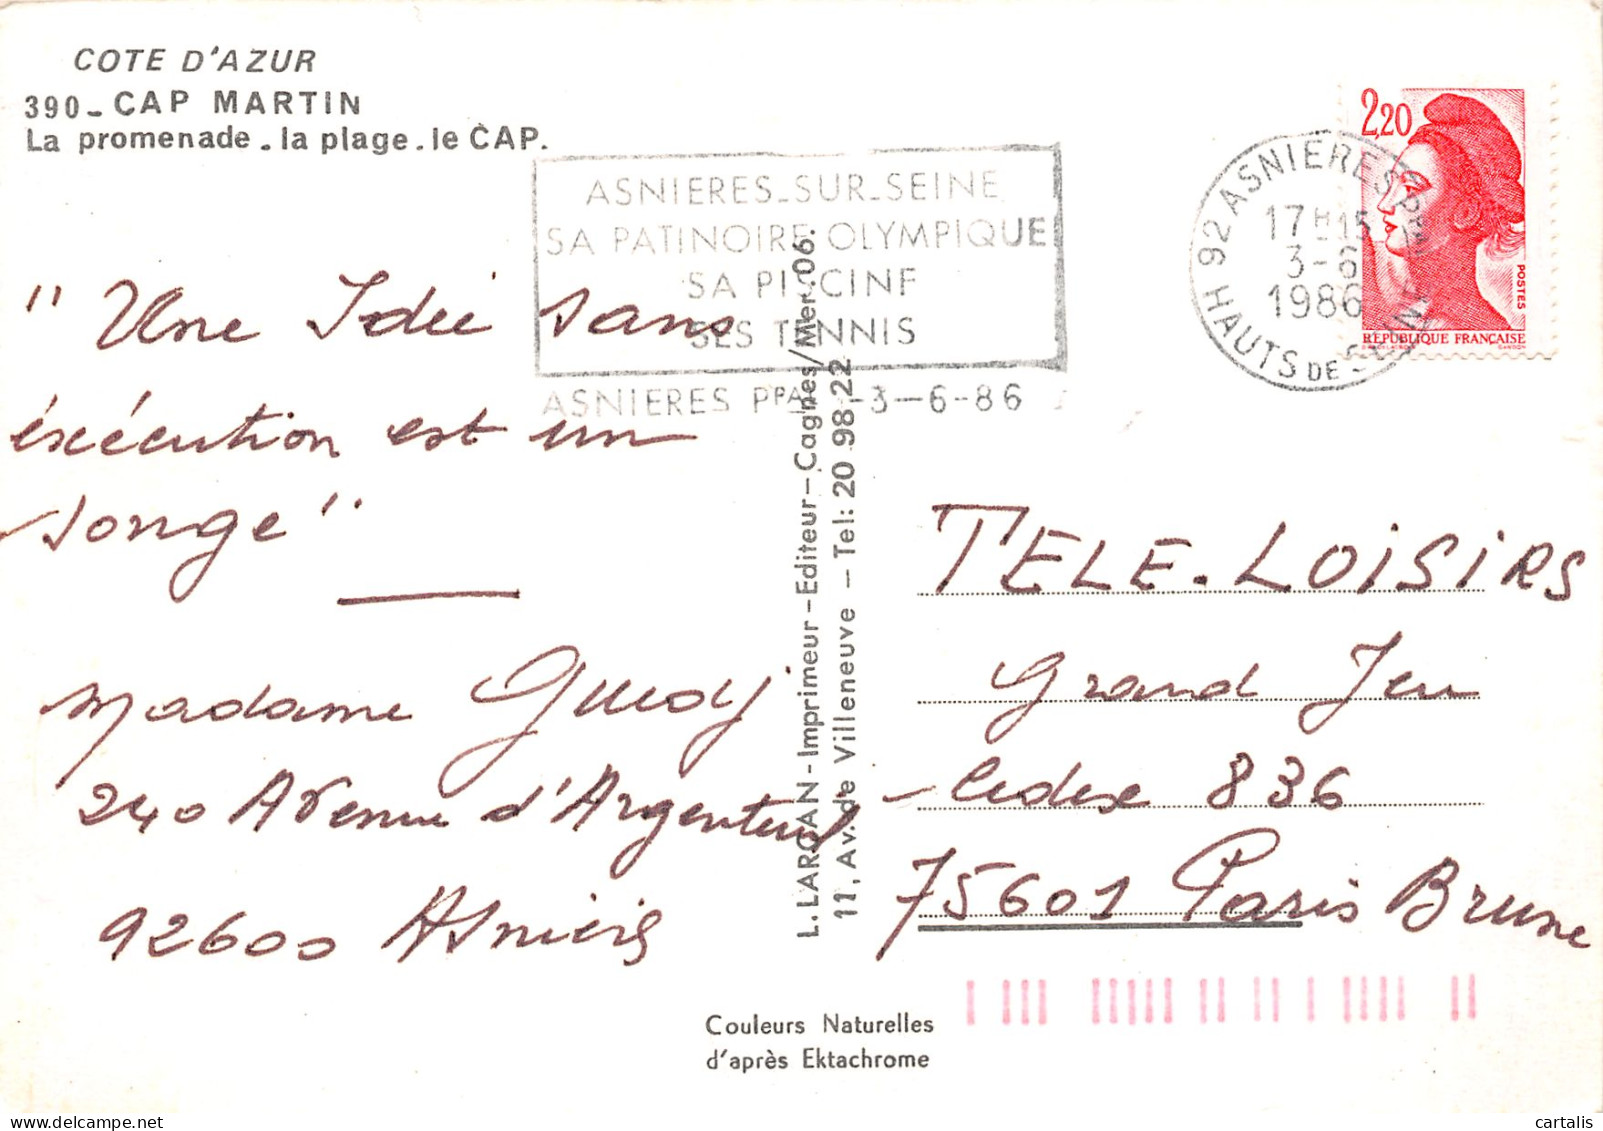 COTE D'AZUR
390_ CAP MARTIN
La promenade . la plage . le CAP.
ASNIERES_SUR_SEINE
SA PATINOIRE OLYMPIQUE
SA PISCINE
SES TENNIS
ASNIERES PPAL -3-6-86
92 ASNIERES PPAL
17H15
3-6
1986
HAUTS DE SEINE
2,20
POSTES
REPUBLIQUE FRANÇAISE
" Une Idée sans
éxécution est un
songe "
Madame Guedj
240 Avenue d'Argenteuil
92600 Asnières
L. LARGAN - Imprimeur - Editeur - Cagnes/Mer - 06.
11, Av. de Villeneuve - Tel: 20 98 22
TELE-LOISIRS
Grand Jeu
Cedex 836
75601 Paris Brune
Couleurs Naturelles
d'après Ektachrome
delcampe.net
cartalis